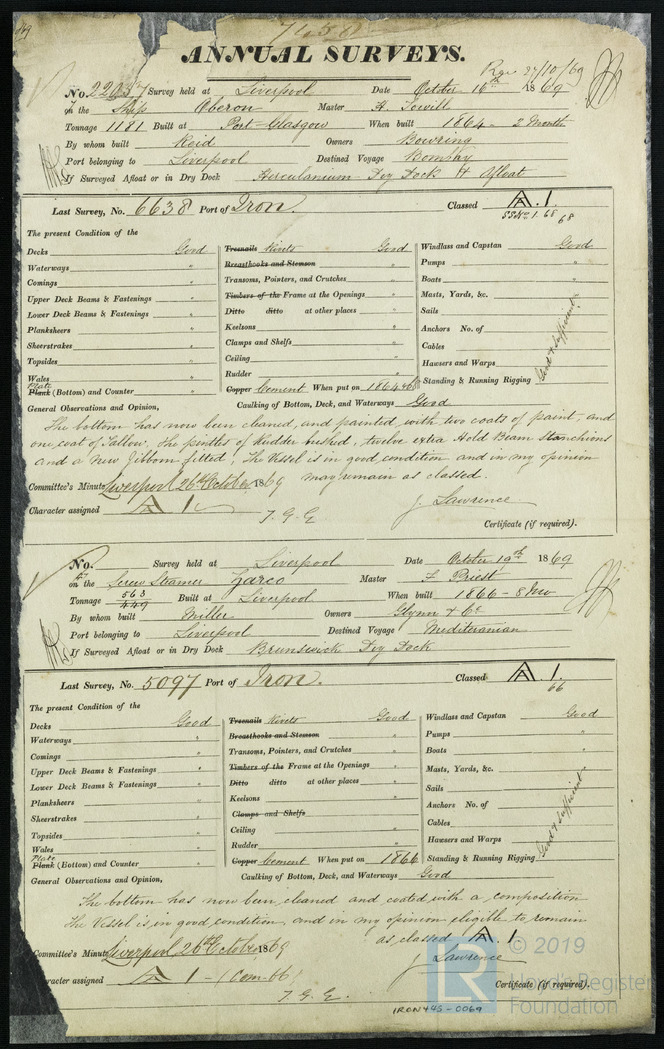 7650
ANNUAL SURVEYS.
Rec 27/10/69
No. 22037 Survey held at Liverpool Date October 16th 1869
on the Ship Oberon Master H. Towill
Tonnage 1181 Built at Port-Glasgow When built 1864 - 2 Month
By whom built Reid Owners Bowring
Port belonging to Liverpool Destined Voyage Bombay
If Surveyed Afloat or in Dry Dock Herculanium Dry Dock & Afloat
Last Survey, No. 6638 Port of Iron. Classed A.1.
SSNo 1. 68 68
The present Condition of the
Decks Good
Waterways "
Comings "
Upper Deck Beams & Fastenings "
Lower Deck Beams & Fastenings "
Planksheers "
Sheerstrakes "
Topsides "
Wales "
Plate
Plank (Bottom) and Counter "
Treenails Rivets Good
Breasthooks and Stemson "
Transoms, Pointers, and Crutches "
Timbers of the Frame at the Openings "
Ditto ditto at other places "
Keelsons "
Clamps and Shelfs "
Ceiling "
Rudder "
Copper Cement When put on 1864 & 68
Windlass and Capstan Good
Pumps "
Boats "
Masts, Yards, &c.
Sails
Anchors No. of
Cables
Hawsers and Warps
Standing & Running Rigging
Good & sufficient
Caulking of Bottom, Deck, and Waterways Good
General Observations and Opinion,
The bottom has now been cleaned, and painted with two coats of paint, and
one coat of Tallow. The pintles of Rudder bushed, twelve extra Hold Beam Stanchions
and a New Jibboom fitted, The Vessel is in good condition and in my opinion
may remain as classed.
Committee's Minute Liverpool 26th October 1869
J. Lawrence
Character assigned A 1
T. G. G
Certificate (if required).
No. Survey held at Liverpool Date October 19th 1869
on the Screw Steamer Zarco Master F Priest
Tonnage 563 / 449 Built at Liverpool When built 1866 - 8 Mo
By whom built Miller Owners Glynn & Co
Port belonging to Liverpool Destined Voyage Mediteranian
If Surveyed Afloat or in Dry Dock Brunswick Dry Dock
Last Survey, No. 5097 Port of Iron. Classed A.1.
66
The present Condition of the
Decks Good
Waterways "
Comings "
Upper Deck Beams & Fastenings "
Lower Deck Beams & Fastenings "
Planksheers "
Sheerstrakes "
Topsides "
Wales "
Plate
Plank (Bottom) and Counter "
Treenails Rivets Good
Breasthooks and Stemson "
Transoms, Pointers, and Crutches "
Timbers of the Frame at the Openings "
Ditto ditto at other places "
Keelsons "
Clamps and Shelfs
Ceiling "
Rudder "
Copper Cement When put on 1866
Windlass and Capstan Good
Pumps "
Boats "
Masts, Yards, &c.
Sails
Anchors No. of
Cables
Hawsers and Warps
Standing & Running Rigging
Good & sufficient
Caulking of Bottom, Deck, and Waterways Good
General Observations and Opinion,
The bottom has now been cleaned and coated with a composition
The Vessel is in good condition, and in my opinion eligible to remain
as classed A.1
Committee's Minute Liverpool 26th October 1869
J. Lawrence
Character assigned A 1 - (Com. 66)
T. G. G.
Certificate (if required).
IRON 445-0069
LR © 2019
Lloyd's Register
Foundation